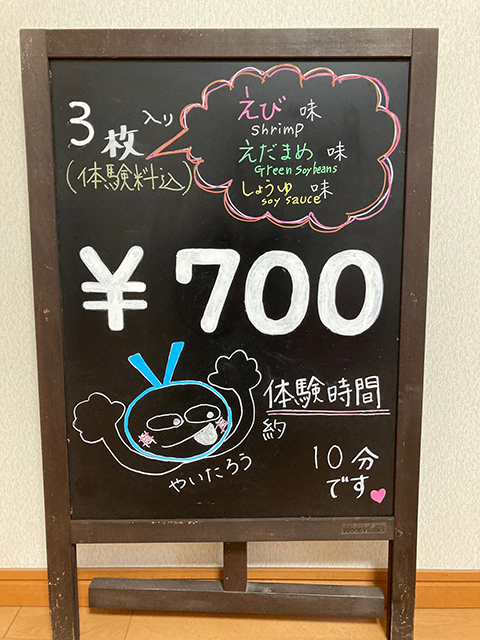 3枚入り
(体験料込)
えび 味
Shrimp
えだまめ 味
Green Soybeans
しょうゆ 味
soy sauce
¥700
体験時間
約
10分
です
やいたろう